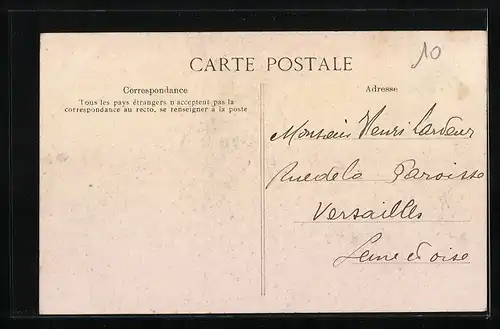 10
CARTE POSTALE
Correspondance
Tous les pays étrangers n'acceptent pas la
correspondance au recto, se renseigner à la poste
Adresse
Monsieur Henri
Rue de la Paroisse
Versailles
Seine et oise